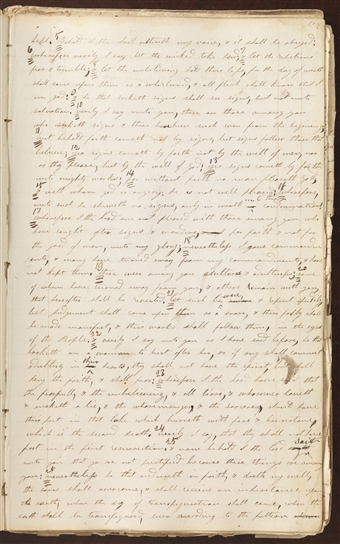 hold I the Lord utter my voice, & it shall be obeyed
6 wherefore verely I say let the wicked take heed 7 & let the rebelious
fear & tremble; 8 let the unbelieving hold there lips, for the day of wrath
shall come upon them as a whirlwind, & all flesh shall know that I
am god; 9 & he that seeketh signs shall see signs, but not unto
salvation; verely I say unto you, there are those among you
who seeketh signs & there has been such even from the beginning
11 but behold faith cometh not by signs, but signs follow those that
believe; 12 yea signs cometh by faith not by the will of man, nor
as they please, but by the will of God; 13 yea signs cometh by faith
unto mighty works; 14 for without faith no man pleaseth God;
15 & with whom god is angery, he is not well pleased; 16 wherefore
unto such he sheweth no signs, only in wrath
17 wherefore I the Lord am not pleased with those among you who
have sought after signs & wonders, for faith & not for
the good of men, unto my glory; 18 nevertheless I gave commandm
ents, & many have turned away from my commandments, & have
not kept them 19 there were among you adulterers & adulteresses; 20 some
of whom have turned away from you, & others remain with you,
that hereafter shall be revealed; 21 let such beware, & repent speedily
lest judgement shall come upon them as a snare, & there folly shall
be made manifest, & there works shall follow them, in the eyes
of the People; 22 & verely I say unto you as I have said before, he that
looketh on a woman to lust after her, or if any shall commit
adultery in there hearts, they shall not have the spirit, but shall
deny the faith, & shall fear; 23 wherefore I the Lord have said that
the fearfull, & the unbelieveing, & all liars, & whosoever loveth
& maketh a lie, & the whoremonger, & the sorcerer, should have
there part in that lake which burneth with fire & brimstone,
which is the second death, 24 verely I say, that they shall not have
part in the first resurrection; 25 & now behold I the Lord saith
unto you that ye are not justified because these things are among
you; 28 nevertheless he that endureth in faith, & doeth my will,
the same shall overcome, & shall receive an inheritance upon
the earth, when the day of transfiguration shall come, when the
earth shall be transfigured, even according to the pattern